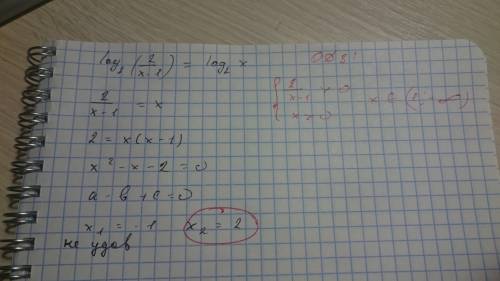 log₂ (2/(x-1)) = log₂ x
ОДЗ:
{ 2/(x-1) > 0
x > 0
x ∈ (1; +∞)
2/(x-1) = x
2 = x(x-1)
x² - x - 2 = 0
a - b + c = 0
x₁ = -1 x₂ = 2
не удов